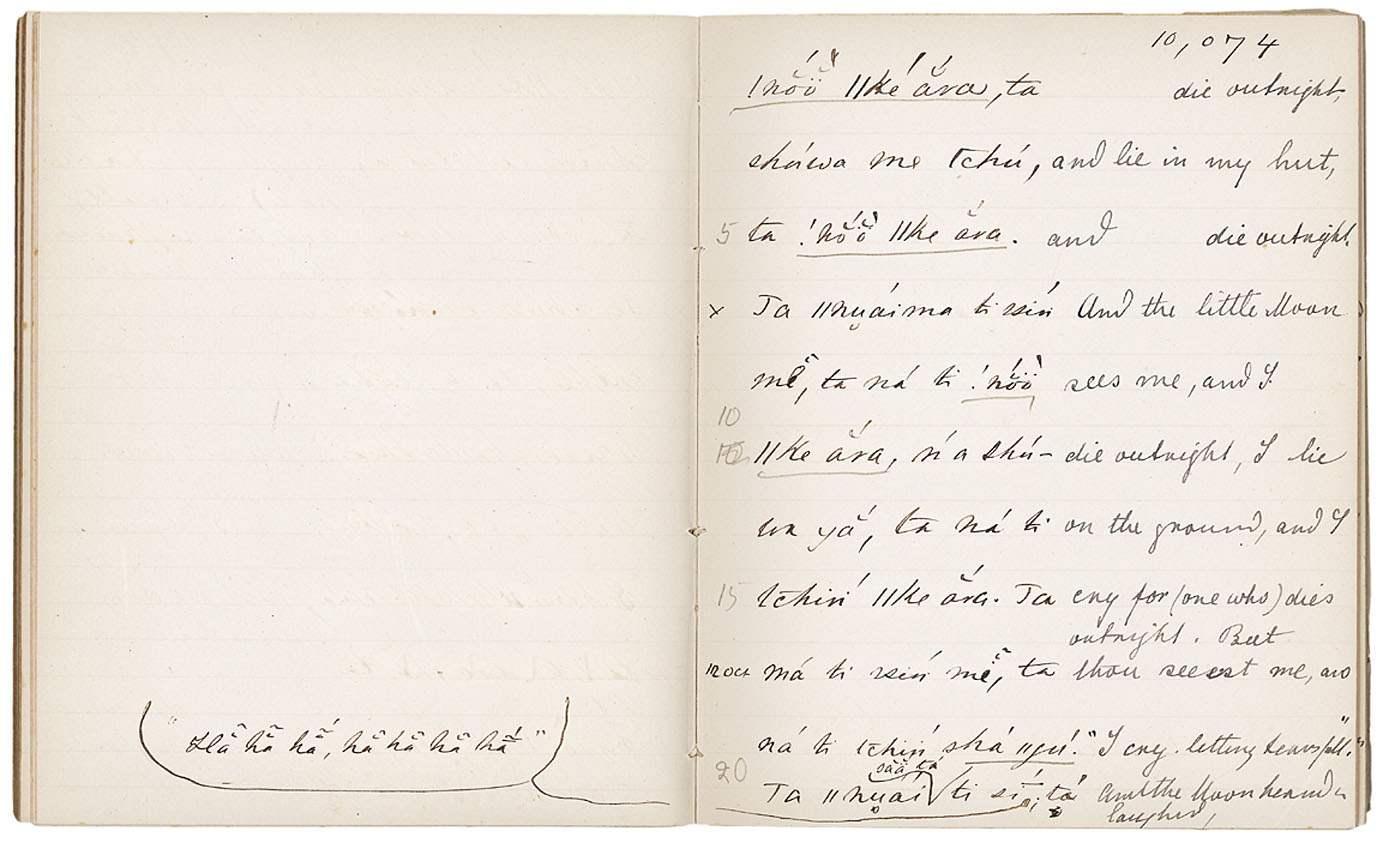 "Hã hã hã, hã hã hã hã"
10,074
!nŏ́ö̀ ǁké ăra, ta die outright,
shúwa me tchú, and lie in my hut,
5 ta !nŏ́ö̀ ǁke ăra. and die outright.
× Ta ǁnu̯áima ti ssíń And the little Moon
mĕ̃, ta ná ti !nŏ́ö̀ sees me, and I
10
ǁke ăra, ń a shú- die outright, I lie
wa yă, ta ná ti on the ground, and I
15 tchiń ǁke ăra. Ta cry for (one who) dies
outright. But
12 Oct má ti ssíń mĕ̃, ta thou seeest me, and
ná ti tchiń shá ǁgú." I cry. letting tears fall."
săă tá
20 Ta ǁnu̯ái ti sí; tá And the Moon heard &
laughed,